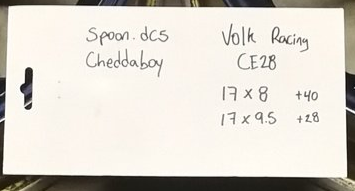 Spoon.dc5
Cheddaboy
Volk Racing
CE28
17 x 8 +40
17 x 9.5 +28